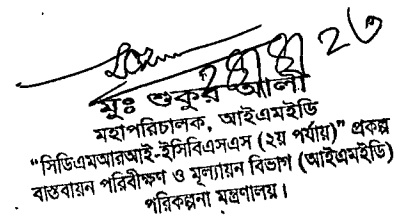 মুঃ শুকুর আলী
মহাপরিচালক, আইএমইডি
“সিডিএমআরআই-ইসিবিএসএস (২য় পর্যায়)” প্রকল্প
বাস্তবায়ন পরিবীক্ষণ ও মূল্যায়ন বিভাগ (আইএমইডি)
পরিকল্পনা মন্ত্রণালয়।